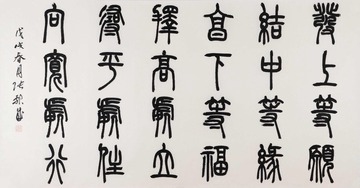 發上等願
結中等緣
享下等福
擇高處立
尋平處住
向寬處行
戊戌春月